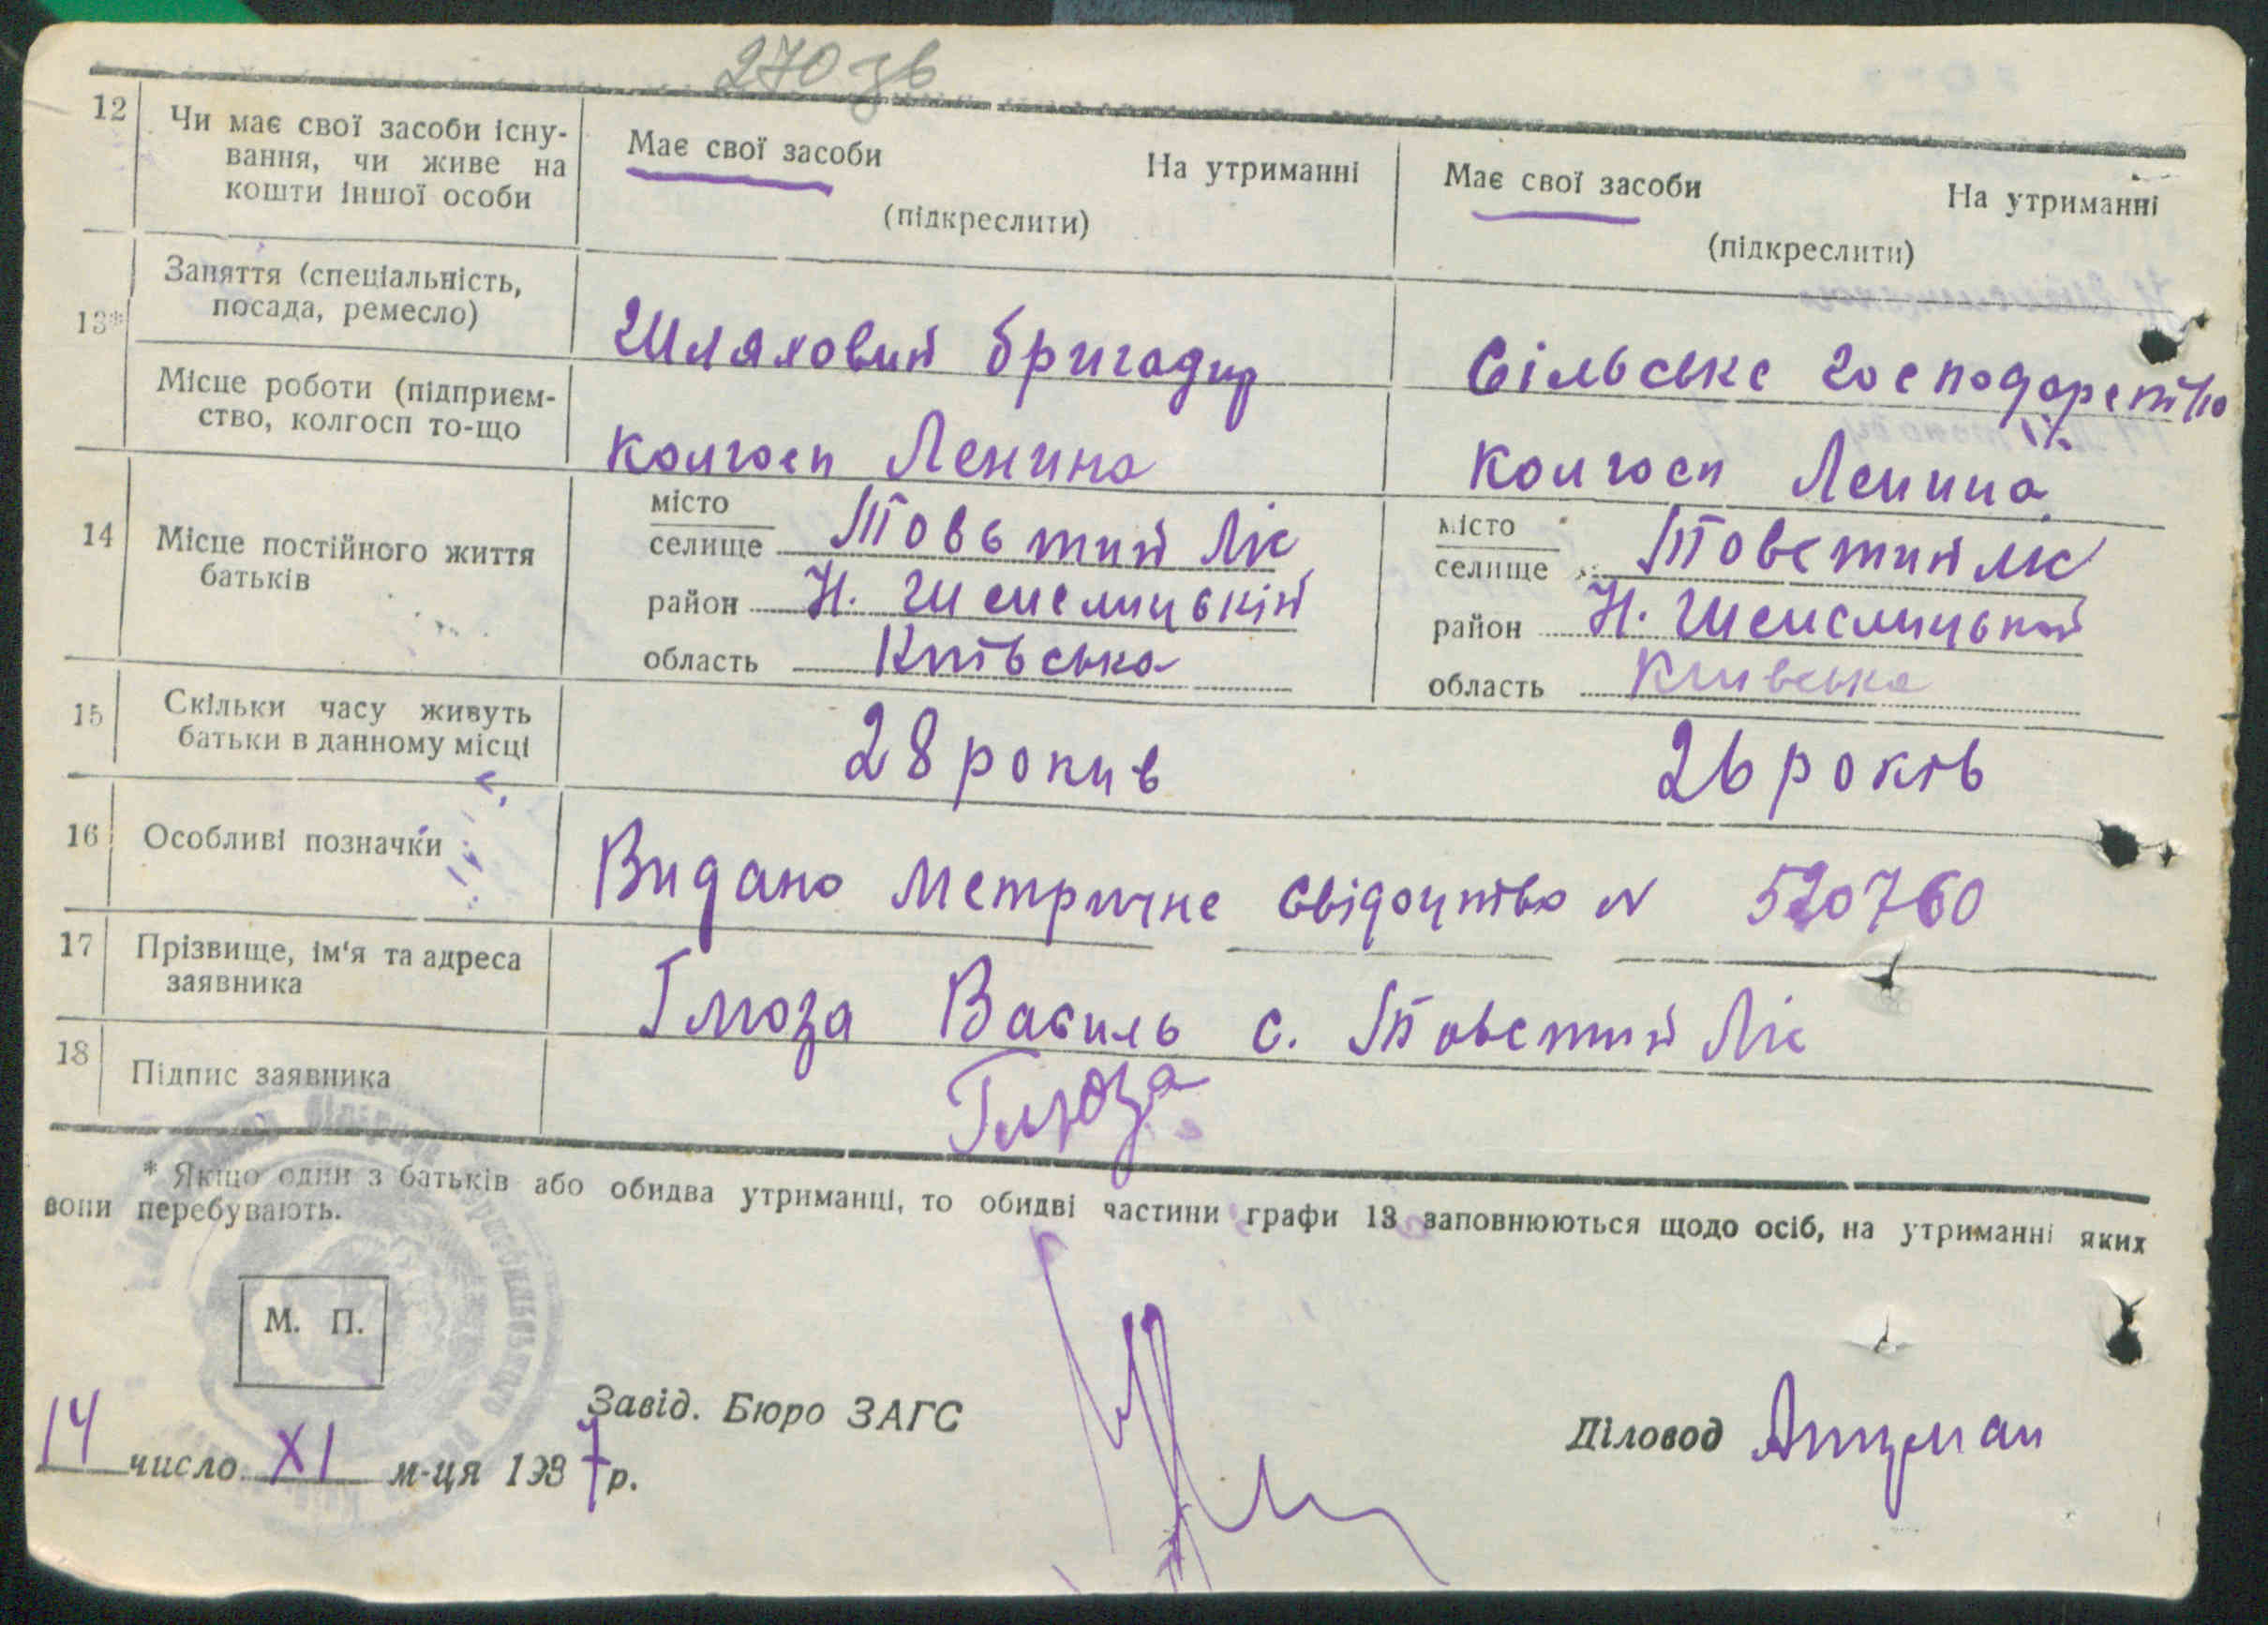 270 зв
12 Чи має свої засоби існу-
вання, чи живе на
кошти іншої особи
Має свої засоби На утриманні
(підкреслити)
Має свої засоби На утриманні
(підкреслити)
13*
Заняття (спеціальність,
посада, ремесло)
Шляховий бригадир
Сільське господарство
Місце роботи (підприєм-
ство, колгосп то-що
колгосп Ленина
колгосп Ленина
14 Місце постійного життя
батьків
місто
селище Товстий Ліс
район Н. Шепелицький
область Київська
місто
селище Товстий Ліс
район Н. Шепелицький
область Киивська
15 Скільки часу живуть
батьки в данному місці
28 рокив
26 років
16 Особливі позначки
Видано метричне свідоцтво N 520760
17 Прізвище, ім‘я та адреса
заявника
Глюза Василь с. Товстий Ліс
18 Підпис заявника
Глюза
* Якщо один з батьків або обидва утриманці, то обидві частини графи 13 заповнюються щодо осіб, на утриманні яких
вони перебувають.
М. П.
Завід. Бюро ЗАГС
Діловод
14 число XI м-ця 1937 р.